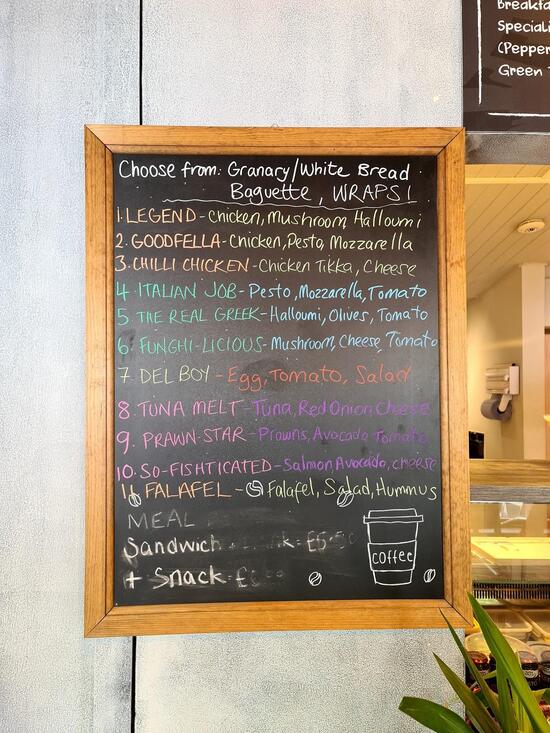 Breakfa
Speciali
(Pepper
Green
Choose from: Granary/White Bread
Baguette, WRAPS!
1. LEGEND - Chicken, Mushroom, Halloumi
2. GOODFELLA - Chicken, Pesto, Mozzarella
3. CHILLI CHICKEN - Chicken Tikka, Cheese
4. ITALIAN JOB - Pesto, Mozzarella, Tomato
5 THE REAL GREEK - Halloumi, Olives, Tomato
6. FUNGHI-LICIOUS - Mushroom, Cheese, Tomato
7 DEL BOY - Egg, Tomato, Salad
8. TUNA MELT - Tuna, Red Onion Cheese
9. PRAWN-STAR - Prawns, Avocado Tomato
10. SO-FISHTICATED - Salmon, Avocado, cheese
11. FALAFEL - Falafel, Salad, Hummus
MEAL
Sandwich = £5
+ Snack £
coffee